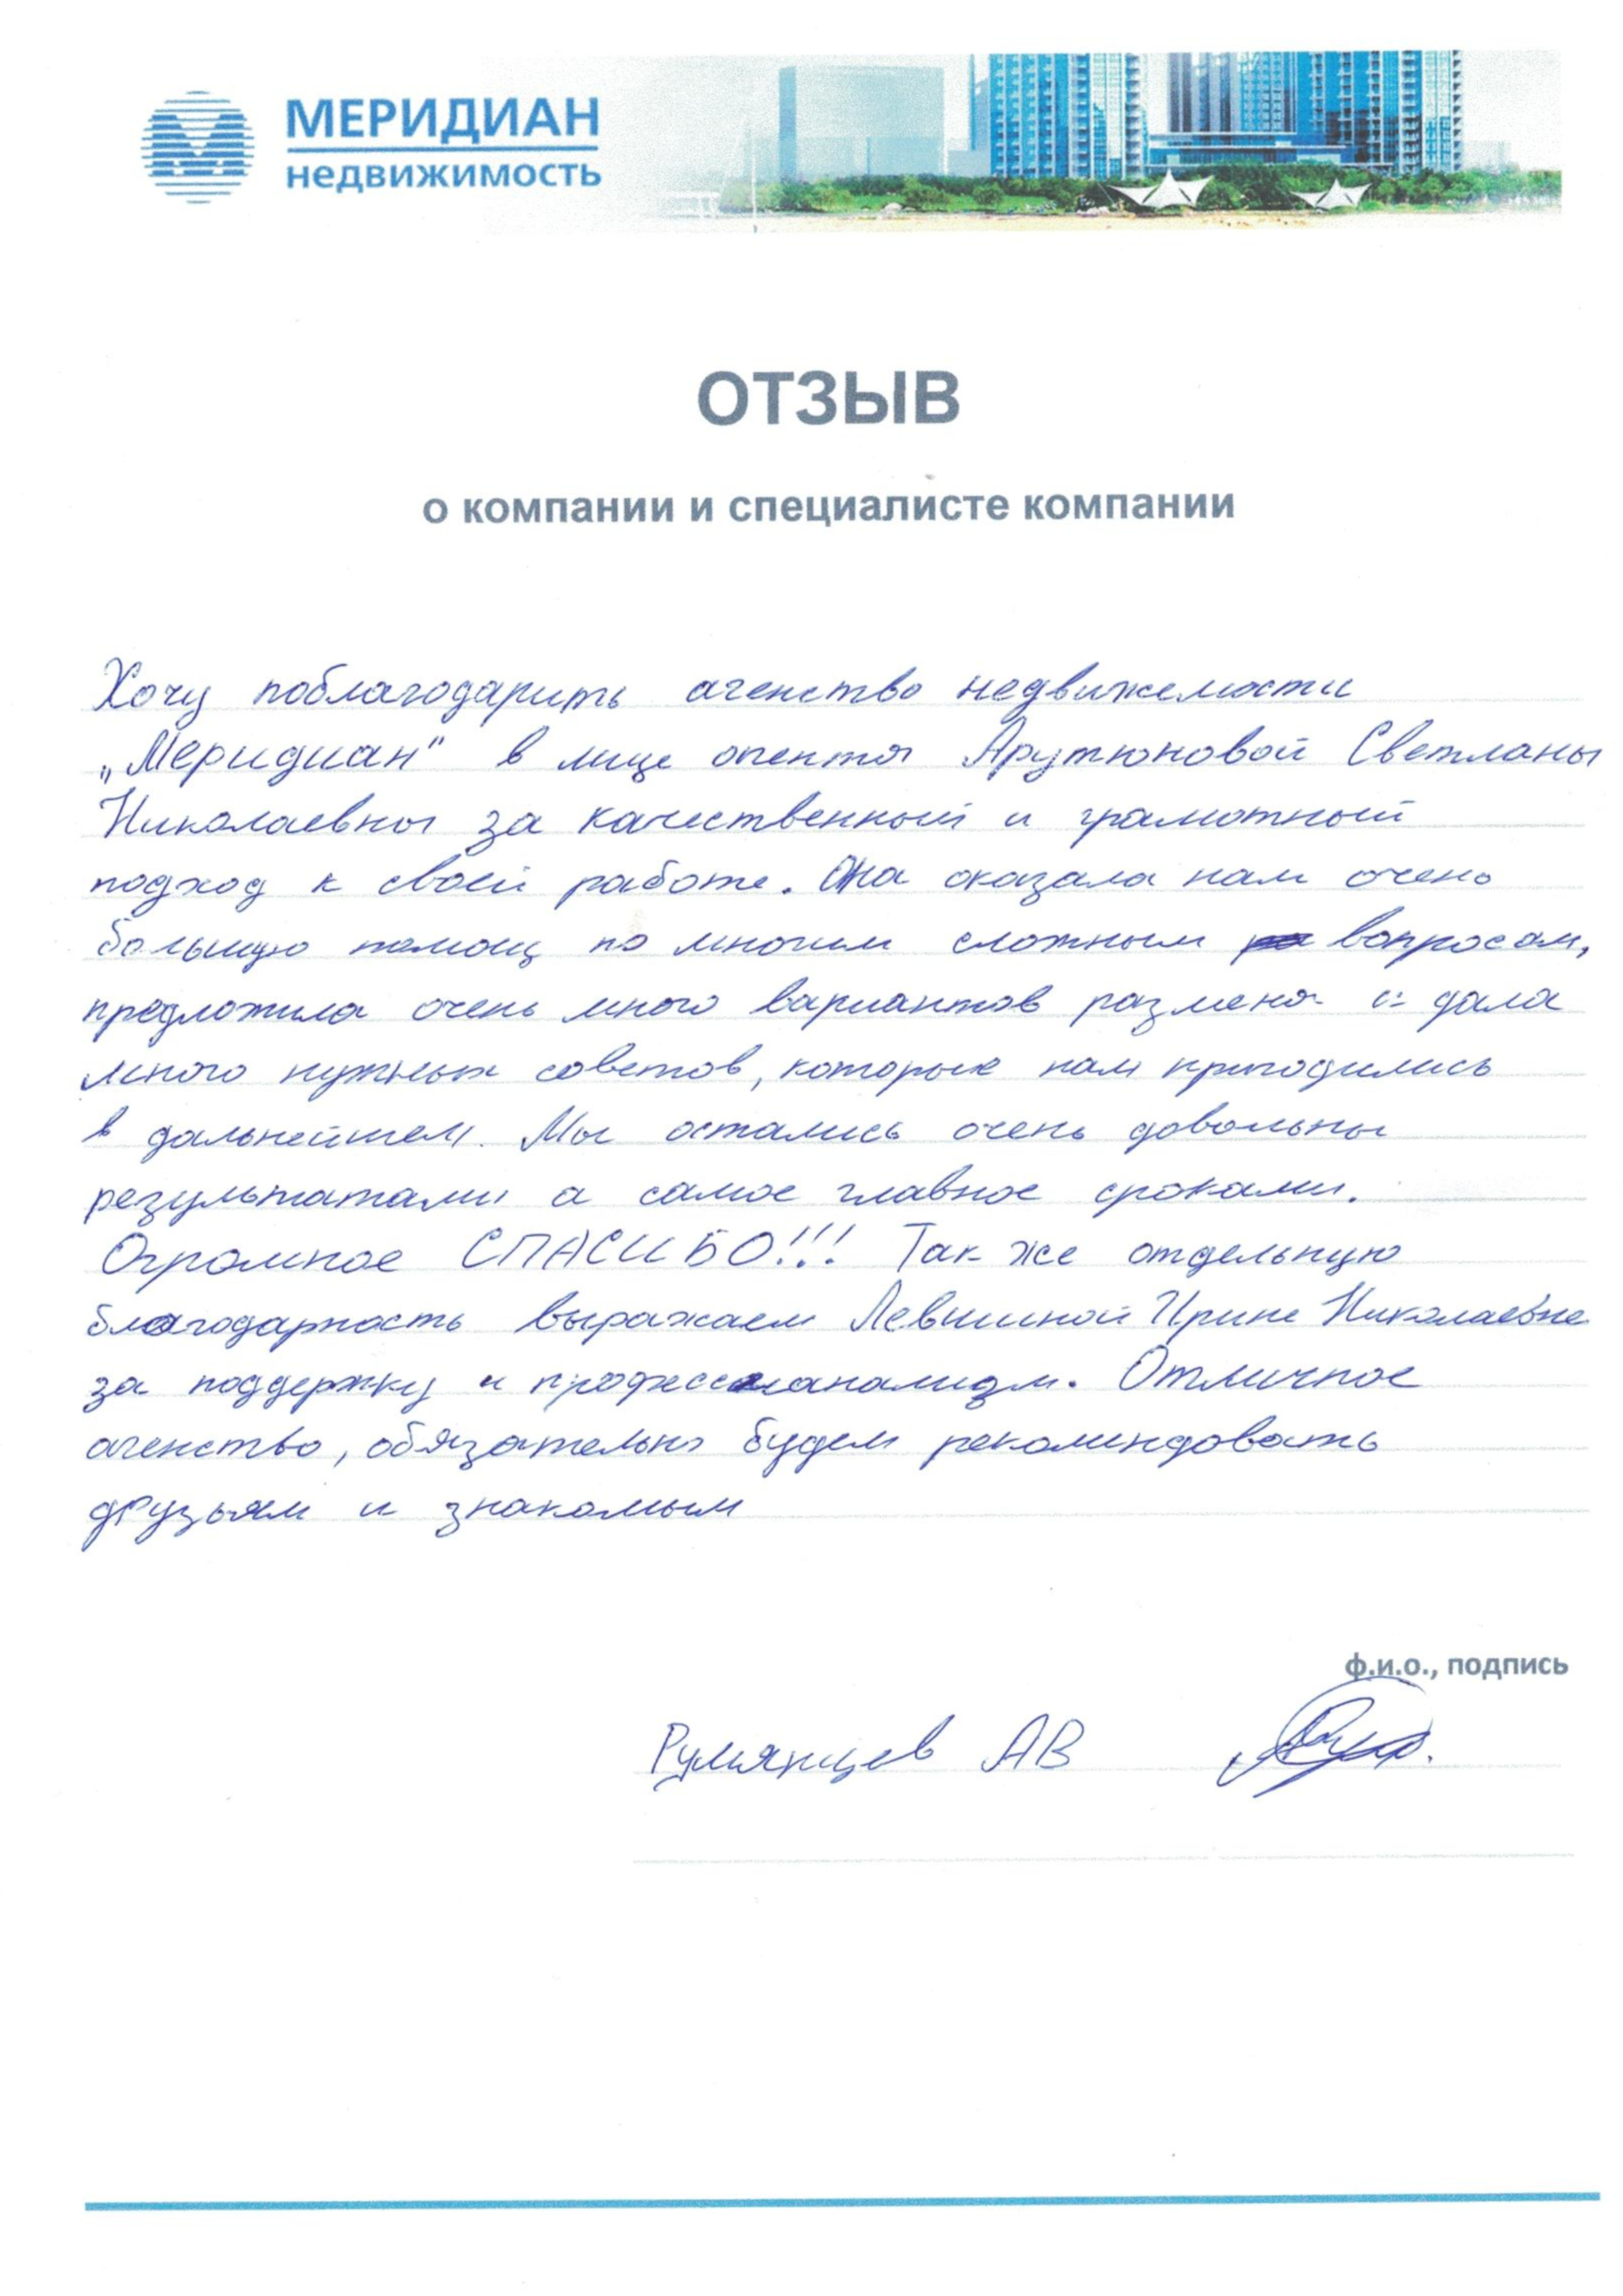 МЕРИДИАН
НЕДВИЖИМОСТЬ
ОТЗЫВ
о компании и специалисте компании
Хочу поблагодарить агенство недвижемости
„Меридиан" в лице агента Арутюновой Светланы
Николаевны за качественный и грамотный
подход к своей работе. Она оказала нам очень
большую помощ по многим сложным вопросам,
предложила очень много вариантов размена и дала
много нужных советов, которые нам пригодились
в дальнейшем. Мы остались очень довольны
результатами а самое главное сроками.
Огромное СПАСИБО!!! Так же отдельную
благодарность выражаем Левшиной Ирине Николаевне
за поддержку и професссионализм. Отличное
агенство, обязательно будем рекомендовать
друзьям и знакомым
ф.и.о., подпись
Румянцев АВ